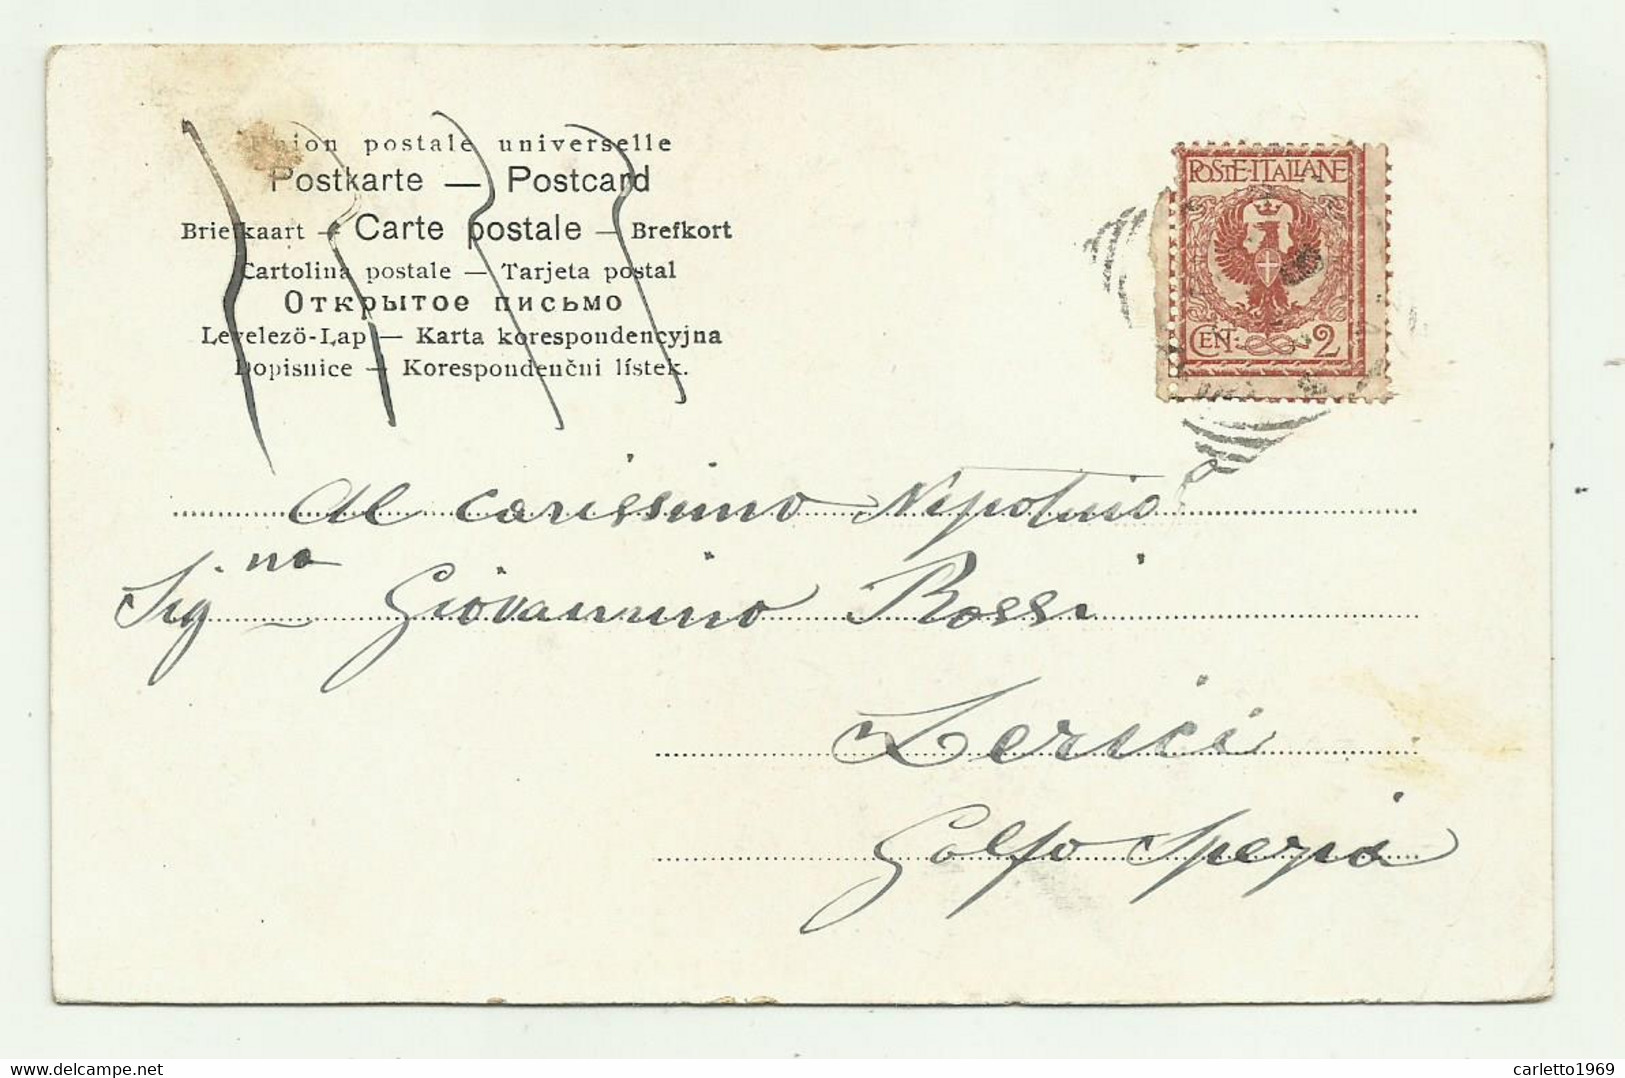 Union postale universelle
Postkarte — Postcard
Briefkaart — Carte postale — Brefkort
Cartolina postale — Tarjeta postal
Открытое письмо
Levelezö-Lap — Karta korespondencyjna
Dopisnice — Korespondenčni lístek.
POSTE·ITALIANE
CENT. 2
Al carissimo Nipotino
Sig.no Giovannino Rossi
Lerici
Golfo Spezia
carletto1969